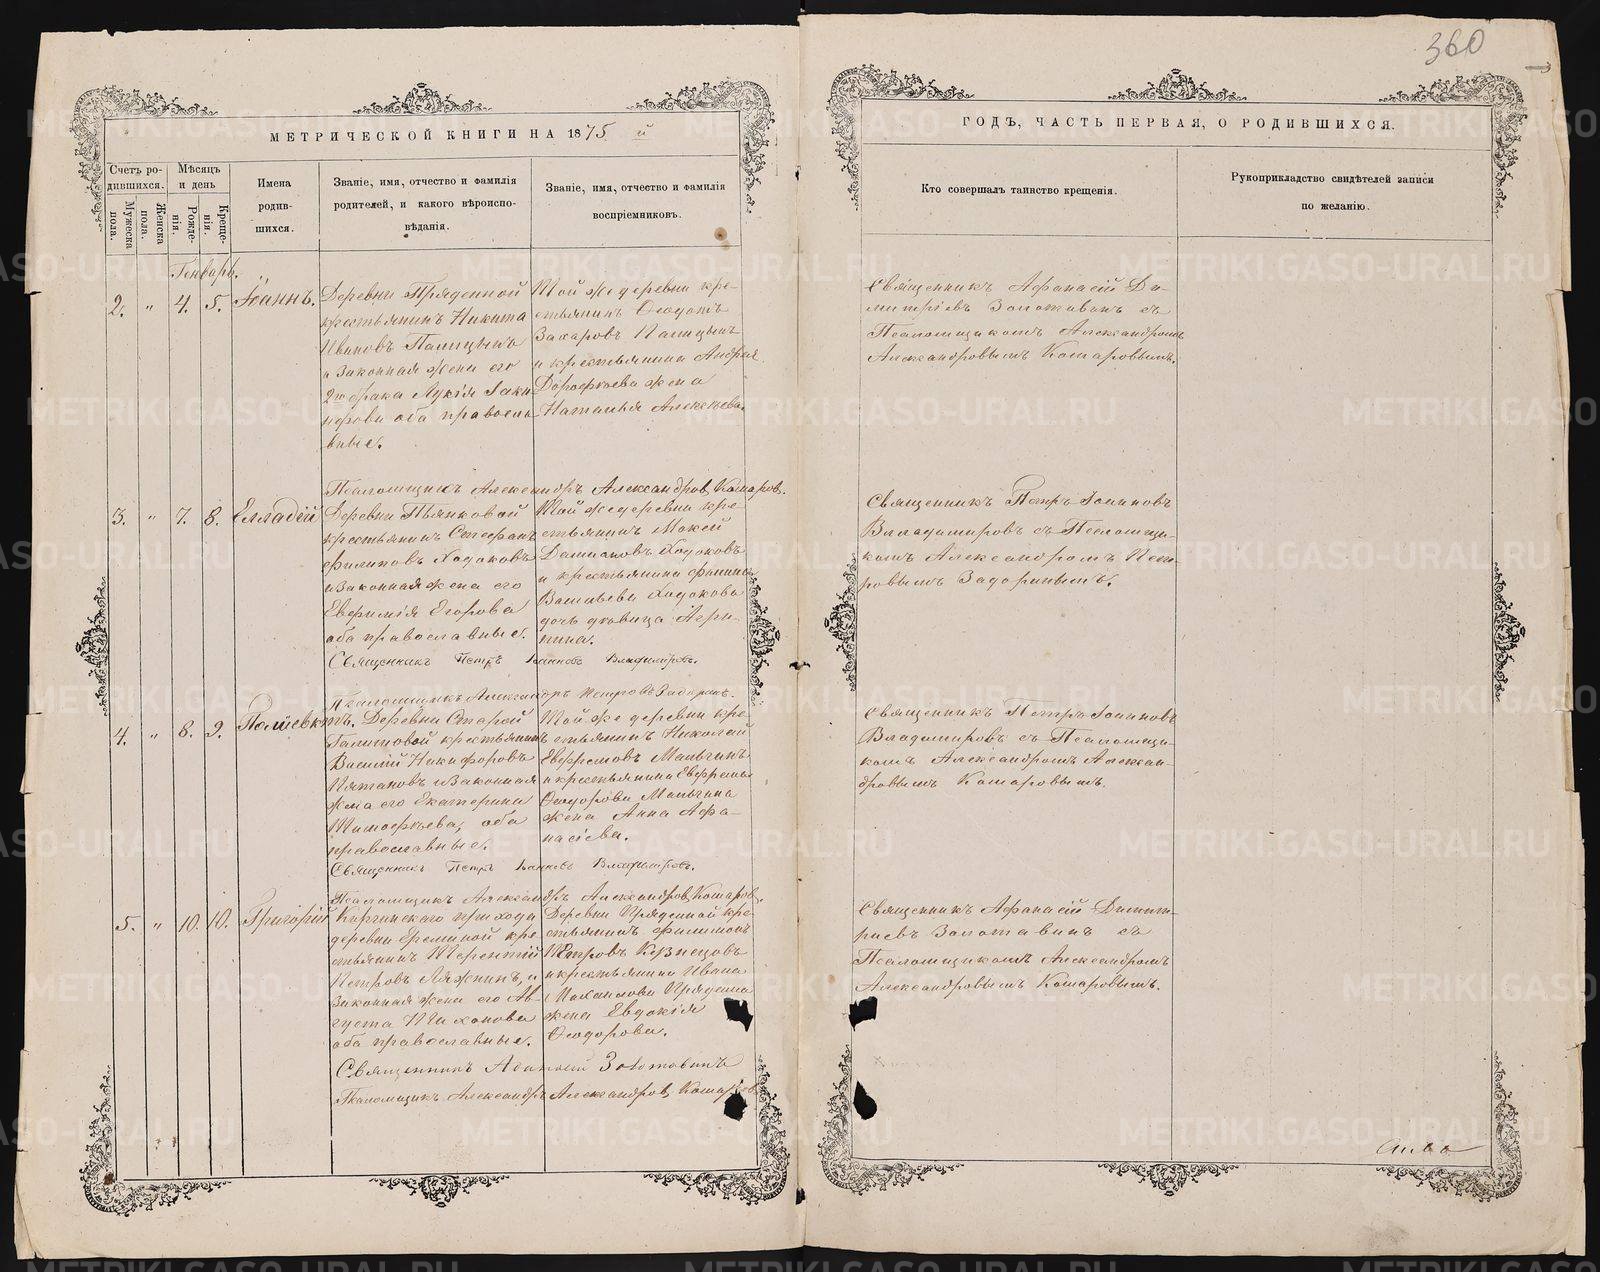 360
МЕТРИЧЕСКОЙ КНИГИ НА 1875 й
ГОДЪ, ЧАСТЬ ПЕРВАЯ, О РОДИВШИХСЯ.
Счетъ ро-
дившихся.
Мужеска
пола.
Женска
пола.
Мѣсяцъ
и день
Рожде-
нія.
Креще-
нія.
Имена
родив-
шихся.
Званіе, имя, отчество и фамилія
родителей, и какого вѣроиспо-
вѣданія.
Званіе, имя, отчество и фамилія
воспріемниковъ.
Кто совершалъ таинство крещенія.
Рукоприкладство свидѣтелей записи
по желанію.
Генварь.
2. " 4. 5. Іоаннъ.
Деревни Пряденной
крестьянинъ Никита
Ивановъ Палицынъ
и законная жена его
2го брака Лукія
оба православ-
ные.
Той же деревни кре-
стьянинъ Ѳеодотъ
Захаровъ Палицынъ
и крестьянина Андрея
Дороѳеева жена
Наталья Алексѣева.
Священникъ Аѳанасій Ди-
митріевъ Золотавинъ съ
Псаломщикомъ Александромъ
Александровымъ Комаровымъ.
Псаломщикъ Александръ Александровъ Комаровъ.
3. " 7. 8. Елладій
Деревни Пьянковой
крестьянинъ Стефанъ
Филиповъ Ходаковъ
и законная жена его
Евфимія Егорова
оба православные.
Той же деревни кре-
стьянинъ Мокей
Даміановъ Ходаковъ
и крестьянина Филипа
Васильева Ходакова
дочь дѣвица Агри-
пина.
Священникъ Петръ Іоанновъ
Владимировъ съ Псаломщи-
комъ Александромъ Пет-
ровымъ Задоринымъ.
Священникъ Петръ Іоанновъ Владимировъ.
Псаломщикъ Александръ Петровъ Задоринъ.
4. " 8. 9. Поліевктъ.
Деревни Старой
крестьянинъ
Василій Никифоровъ
Пятановъ и законная
жена его Екатерина
Тимоѳеева, оба
православные.
Той же деревни кре-
стьянинъ Николай
Ефремовъ Мальгинъ
и крестьянина Ефрема
Ѳеодорова Мальгина
жена Анна Аѳа-
насіева.
Священникъ Петръ Іоанновъ
Владимировъ съ Псаломщи-
комъ Александромъ Алексан-
дровымъ Комаровымъ.
Священникъ Петръ Іоанновъ Владимировъ.
Псаломщикъ Александръ Александровъ Комаровъ.
5. " 10. 10. Григорій
Киргинскаго прихода
деревни Ереминой кре-
стьянинъ Терентій
Петровъ Ляжинъ, и
законная жена его Ав-
густа Тихонова
оба православные.
Деревни Пряденной кре-
стьянинъ Филимонъ
Петровъ Кузнецовъ
и крестьянина Ивана
Михаилова Прядеина
жена Евдокія
Ѳеодорова.
Священникъ Аѳанасій Димит-
ріевъ Золотавинъ съ
Псаломщикомъ Александромъ
Александровымъ Комаровымъ.
Священникъ Аѳанасій Золотавинъ
Псаломщикъ Александръ Александровъ Комаровъ
METRIKI.GASO-URAL.RU